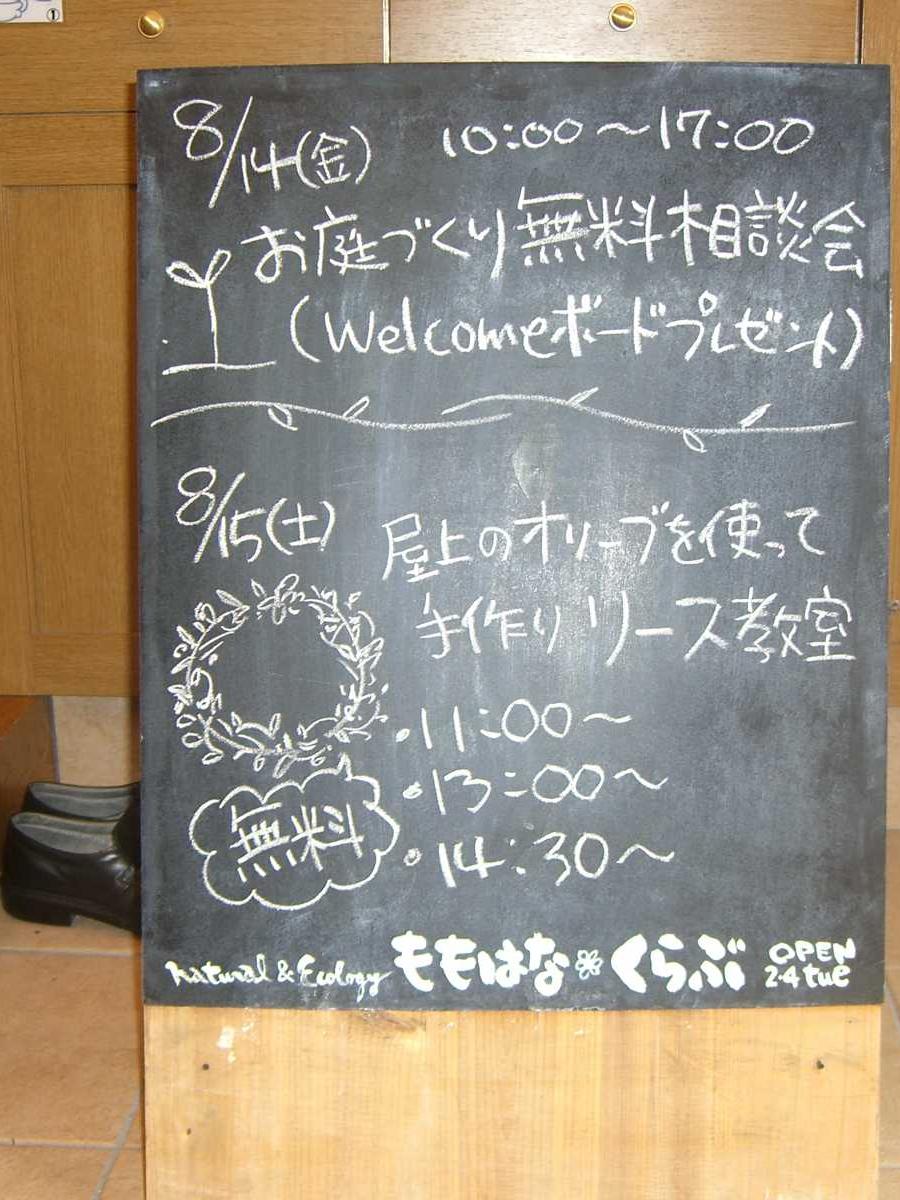 ①
8/14(金) 10:00～17:00
お庭づくり無料相談会
(Welcomeボードプレゼント)
8/15(土) 屋上のオリーブを使って
手作りリース教室
・11:00～
・13:00～
・14:30～
無料
Natural & Ecology ももはな くらぶ OPEN 2・4 tue